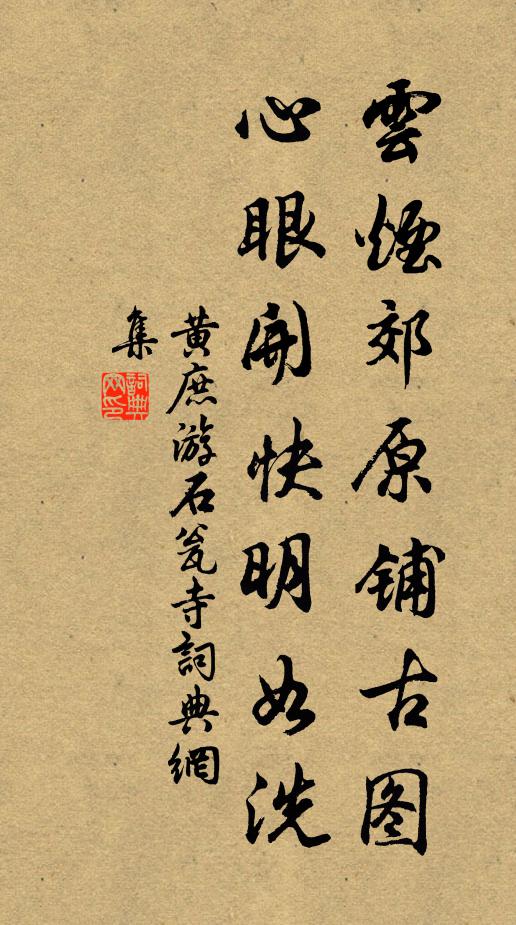 雲煙郊原铺古图
心眼開快明如洗
黄庶游石瓮寺詞典網
集
詞典